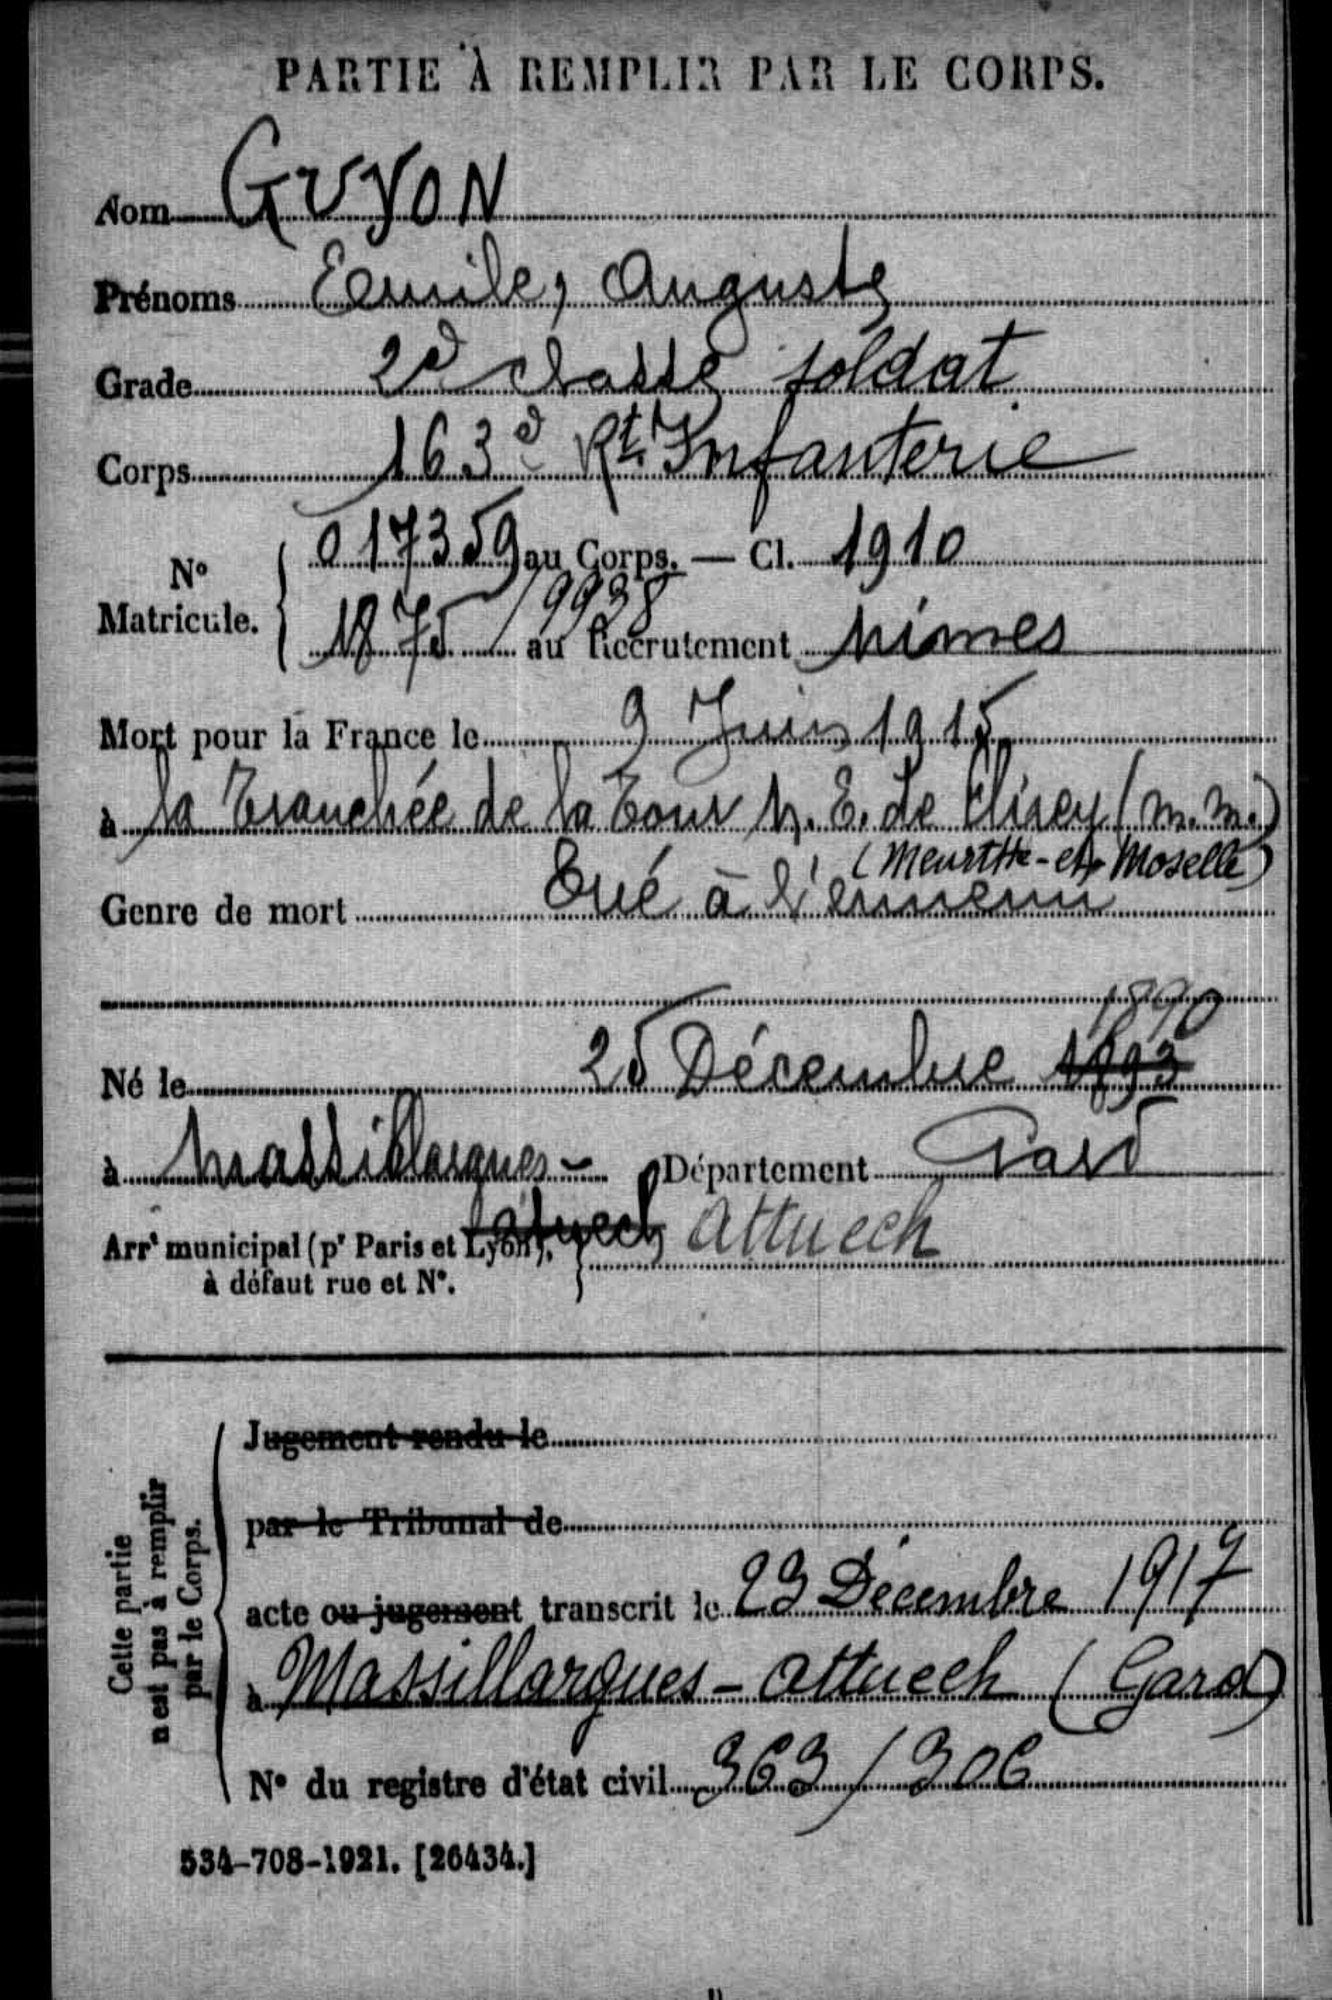 PARTIE À REMPLIR PAR LE CORPS.
Nom GUYON
Prénoms Emile, Auguste
Grade 2e classe soldat
Corps 163e Rt. Infanterie
N° Matricule. 017359 au Corps. — Cl. 1910
1875 / 9938 au Recrutement Nimes
Mort pour la France le 9 Juin 1915
à la Tranchée de la Tour N. E. de Flirey (M. M.)
(Meurthe-et-Moselle)
Genre de mort Tué à l'ennemi
1890
Né le 25 Décembre 1893
à Massillargues - Département Gard
Arrt municipal (pr Paris et Lyon), à défaut rue et N°. Atuech Attuech
Cette partie n'est pas à remplir par le Corps.
Jugement rendu le
par le Tribunal de
acte ou jugement transcrit le 23 Décembre 1917
à Massillargues - Attuech (Gard)
N° du registre d'état civil 363/306
534-708-1921. [26434.]